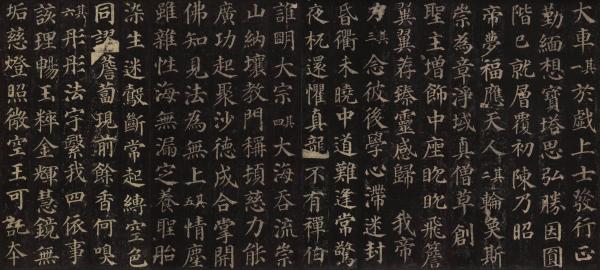 大車其一於戲上士發行正
勤緬想寶塔思弘勝因圓
階已就層覆初陳乃昭
帝夢福應天人其二輪奐斯
崇為章淨域真僧草創
聖主增飾中座眈眈飛簷
翼翼荐臻靈感歸 我帝
力其三念彼後學心滯迷封
昏衢未曉中道難逢常驚
夜枕還懼真龍不有禪伯
誰明大宗其四大海吞流崇
山納壤教門稱頓慈力能
廣功起聚沙德成合掌開
佛知見法為無上其五情塵
雖雜性海無漏定養聖胎
染生迷鷇斷常起縛空色
同謬薝蔔現前餘香何嗅
其六彤彤法宇繫我四依事
該理暢玉粹金輝慧鏡無
垢慈燈照微空王可託本